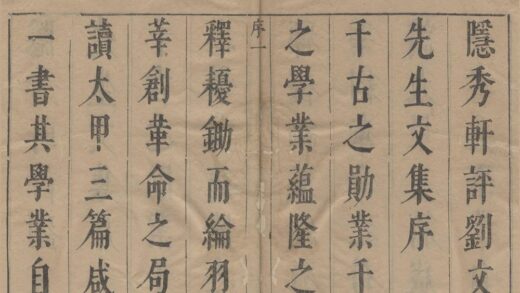 隱秀軒評劉文
先生文集序
千古之勛業千
之學業蘊隆之
序一
釋耰鋤而綸羽
莘創革命之局
讀太甲三篇咸
一書其學業自